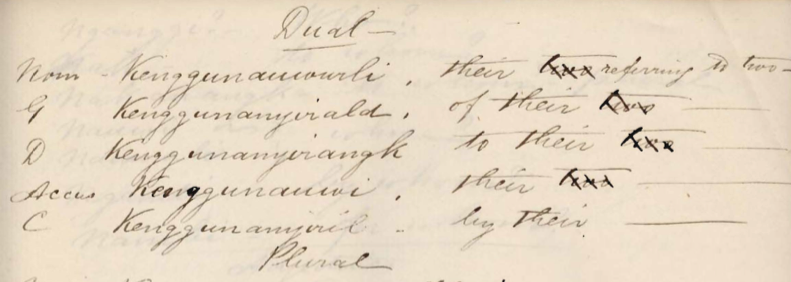 Dual —
Nom - Kenggunauwurli, their two referring to two —
G Kenggunanyirald, of their two —
D Kenggunanyirangk to their two —
Accus Kenggunauwi, their two —
C Kenggunanyiril - by their —
Plural